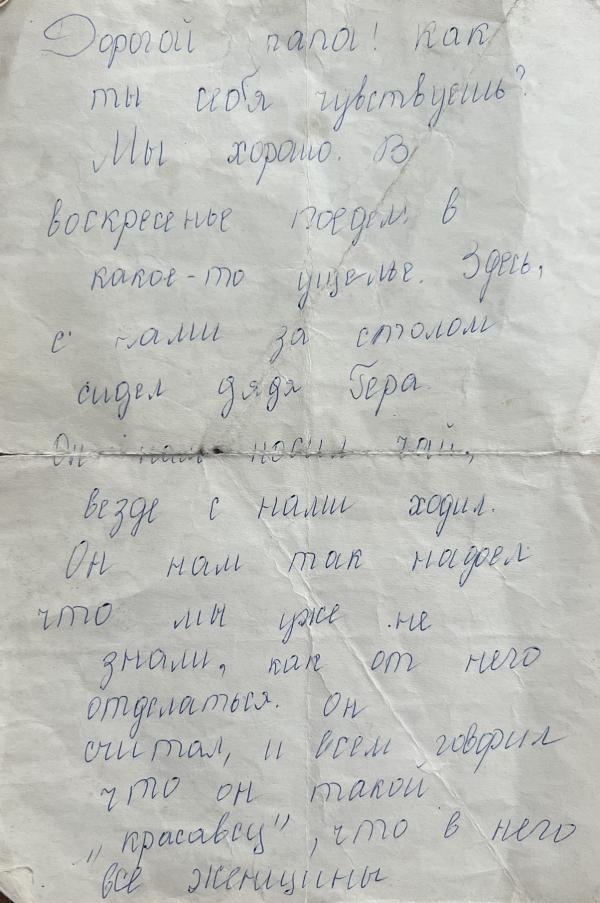 Дорогой папа! Как
ты себя чувствуешь?
Мы хорошо. В
воскресенье поедем в
какое-то ущелье. Здесь,
с нами за столом
сидел дядя Гера.
Он нам носил чай,
везде с нами ходил.
Он нам так надоел
что мы уже не
знали, как от него
отделаться. Он
считал, и всем говорил
что он такой
„красавец", что в него
все женщины